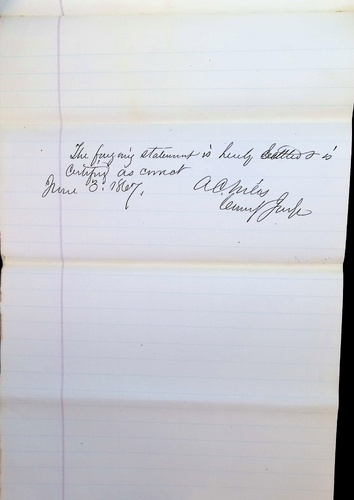 The foregoing statement is hereby settled & is
certified as correct
June 3. 1867.
A.C. Niles
County Judge